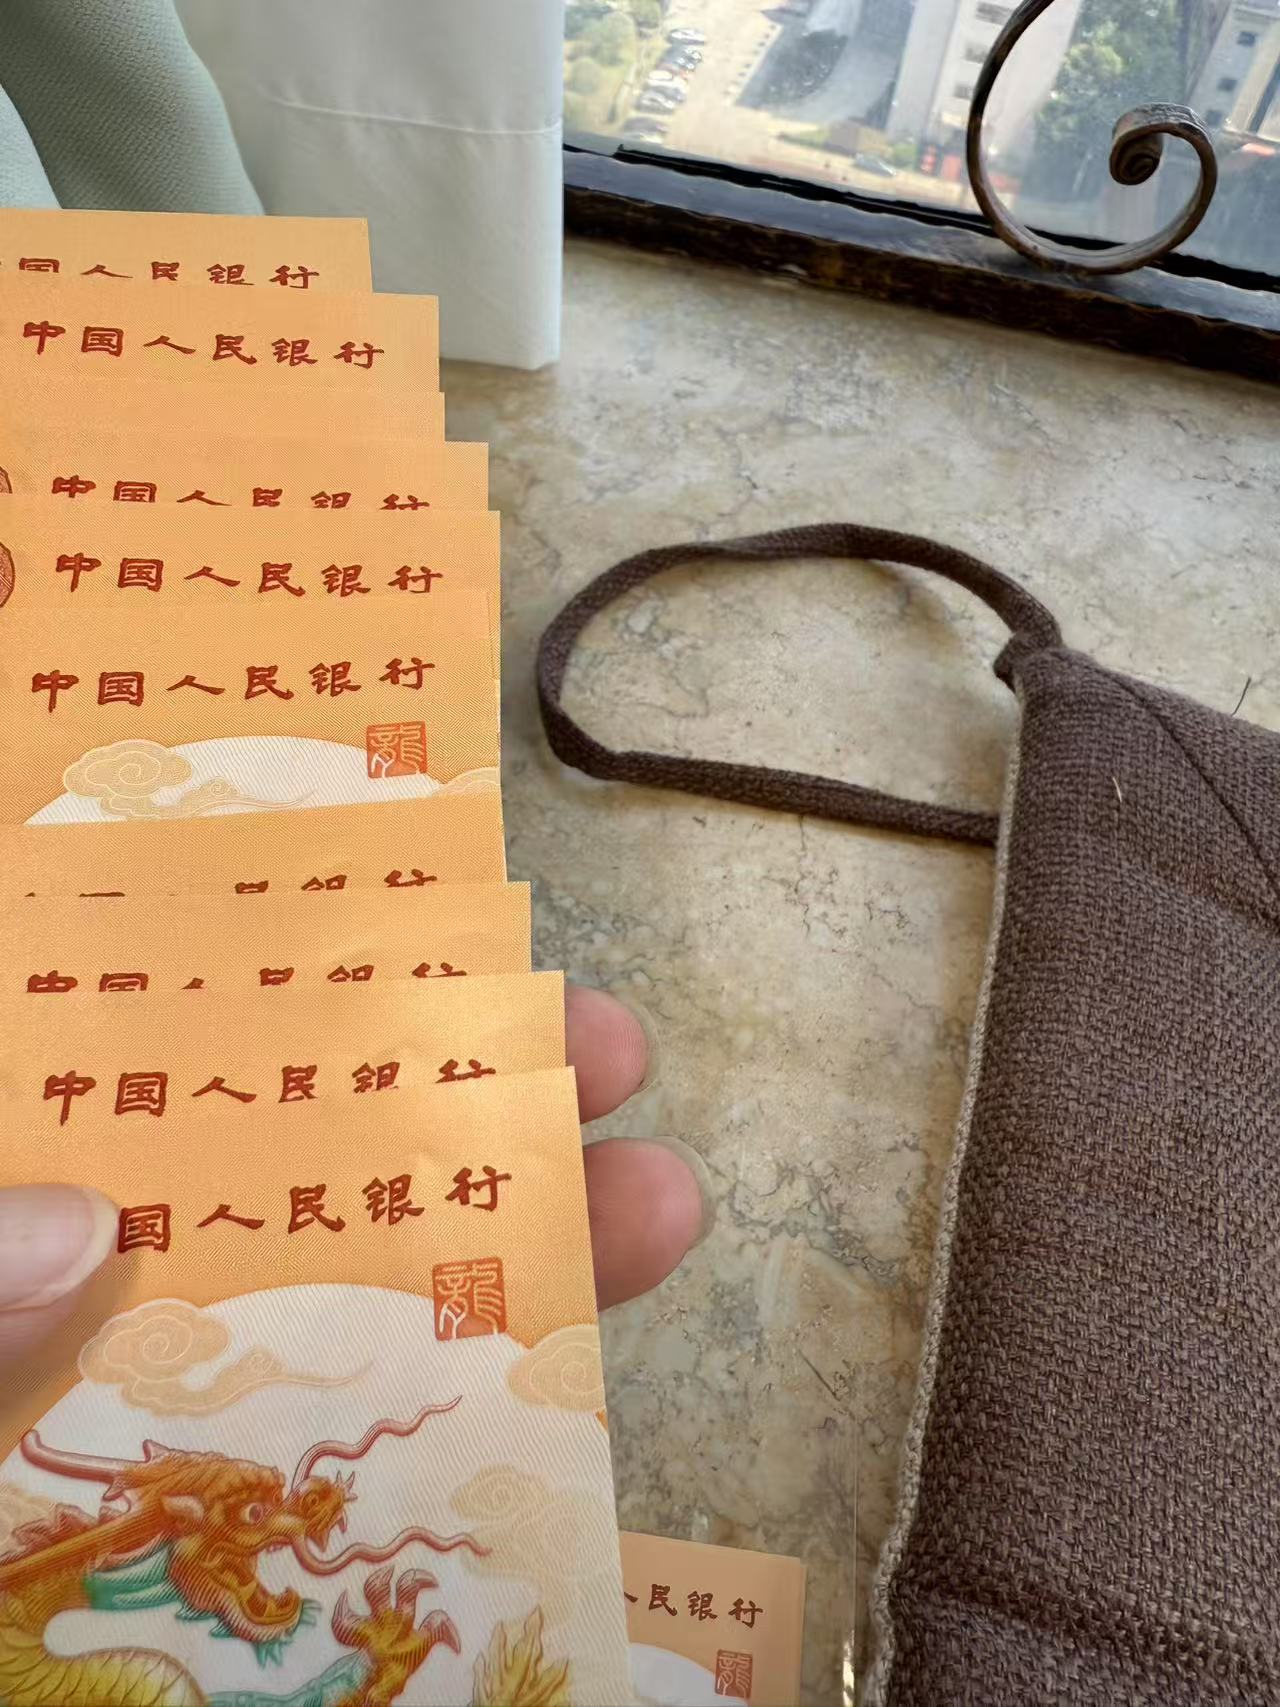 国人民银行
中国人民银行
中国人民银行
中国人民银行
中国人民银行
龍
民银行
中国人民银行
中国人民银行
国人民银行
龍
人民银行
龍